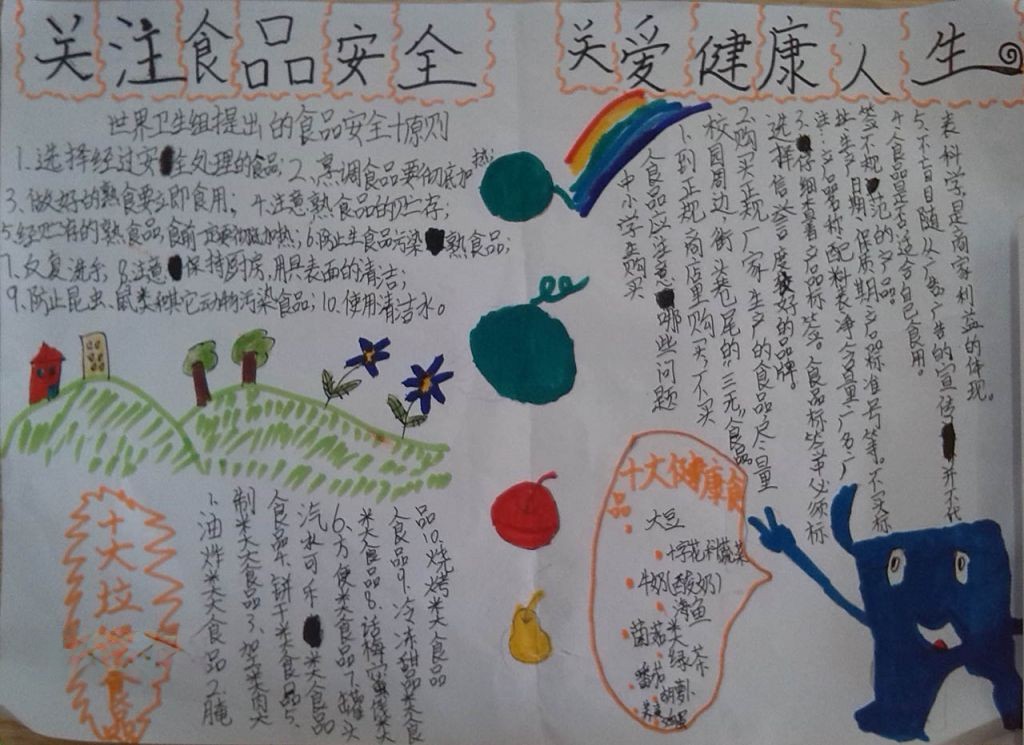 关注食品安全
关爱健康人生
世界卫生组提出的食品安全十原则
1.选择经过安生处理的食品;2、烹调食品要彻底加热;
3、做好的熟食要立即食用;4.注意熟食品的贮存;
5经贮存的熟食品,食前一定要彻底加热;6、防止生食品污染熟食品;
7、反复洗手;8.注意保持厨房,用具表面的清洁;
9.防止昆虫、鼠类和其它动物污染食品;10.使用清洁水。
中小学生购买
食品应注意哪些问题
1.到正规商店里购买,不买
校园周边、街头巷尾的“三无”食品
2.购买正规厂家生产的食品,尽量
选择信誉度较好的品牌
3.仔细查看产品标签。食品标签中必须标
注:产品名称、配料表、净含量、厂名、厂
址、生产日期、保质期、产品标准号等。不买标
签不规范的产品。
4.食品是否适合自己食用。
5.不盲目随从广告,广告的宣传并不代
表科学,是商家利益的体现。
十大垃圾食品
1、油炸类食品2、腌
制类食品3、加工类肉类
食品4、饼干类食品5、
汽水可乐类食品
6、方便类食品7、罐头
类食品8、话梅蜜饯类
食品9、冷冻甜品类食
品10、烧烤类食品
十大健康食
品:
大豆
十字花科蔬菜
牛奶(酸奶)
海鱼
菌菇类
绿茶
番茄
胡萝卜